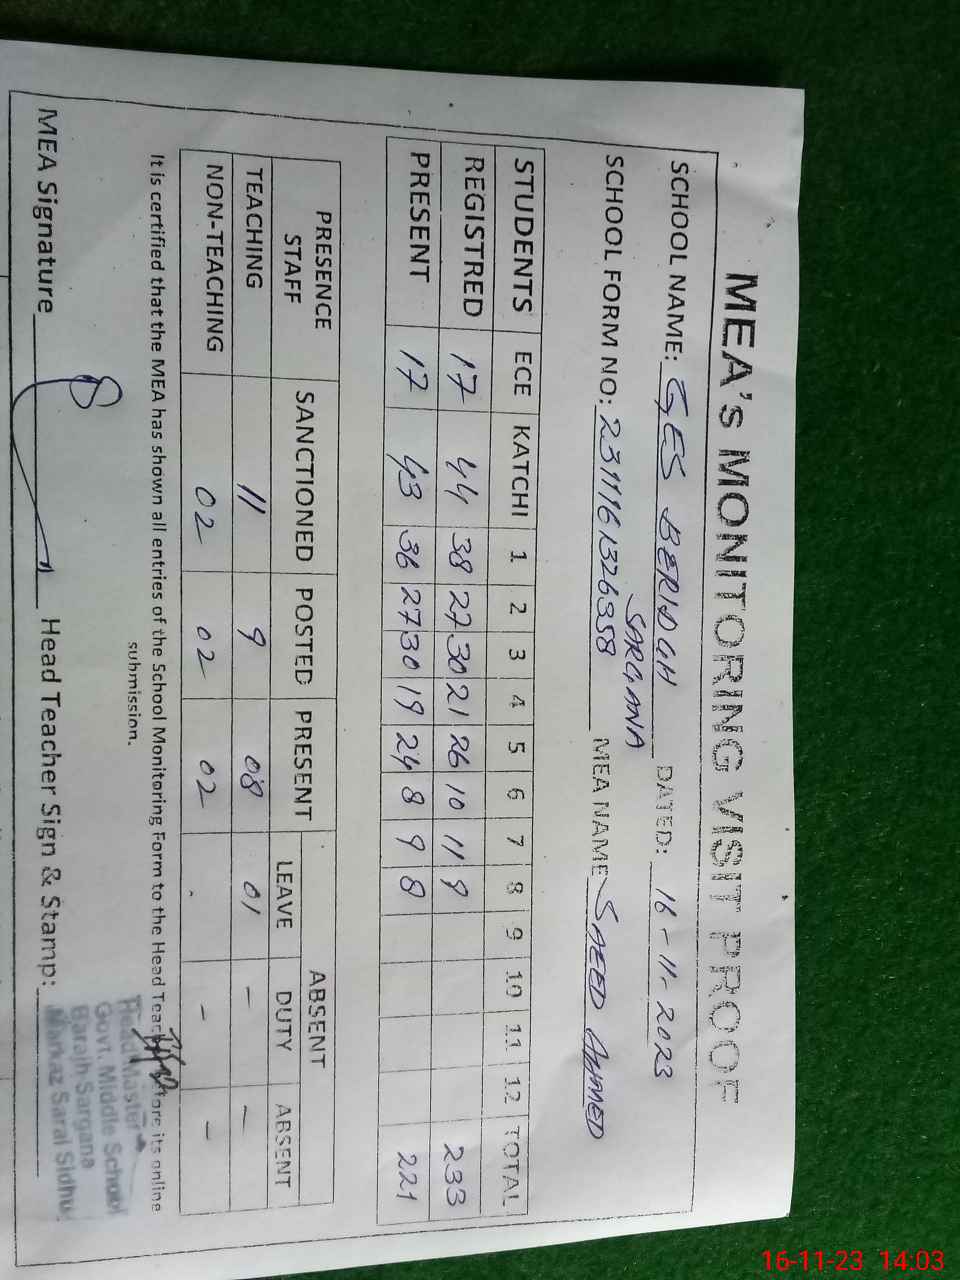 MEA's MONITORING VISIT PROOF
SCHOOL NAME: GES BERIDGH SARGANA DATED: 16-11-2023
SCHOOL FORM NO: 2311161326358 MEA NAME SAEED AHMED
STUDENTS ECE KATCHI 1 2 3 4 5 6 7 8 9 10 11 12 TOTAL
REGISTRED 17 44 38 27 30 21 26 10 11 9 233
PRESENT 17 43 36 27 30 19 24 8 9 8 221
PRESENCE STAFF SANCTIONED POSTED PRESENT ABSENT
LEAVE DUTY ABSENT
TEACHING 11 9 08 01 - -
NON-TEACHING 02 02 02 - -
It is certified that the MEA has shown all entries of the School Monitoring Form to the Head Teacher before its online
submission.
MEA Signature Head Teacher Sign & Stamp:
Head Master
Govt. Middle School
Barajh Sargana
Markaz Sarai Sidhu
16-11-23 14:03